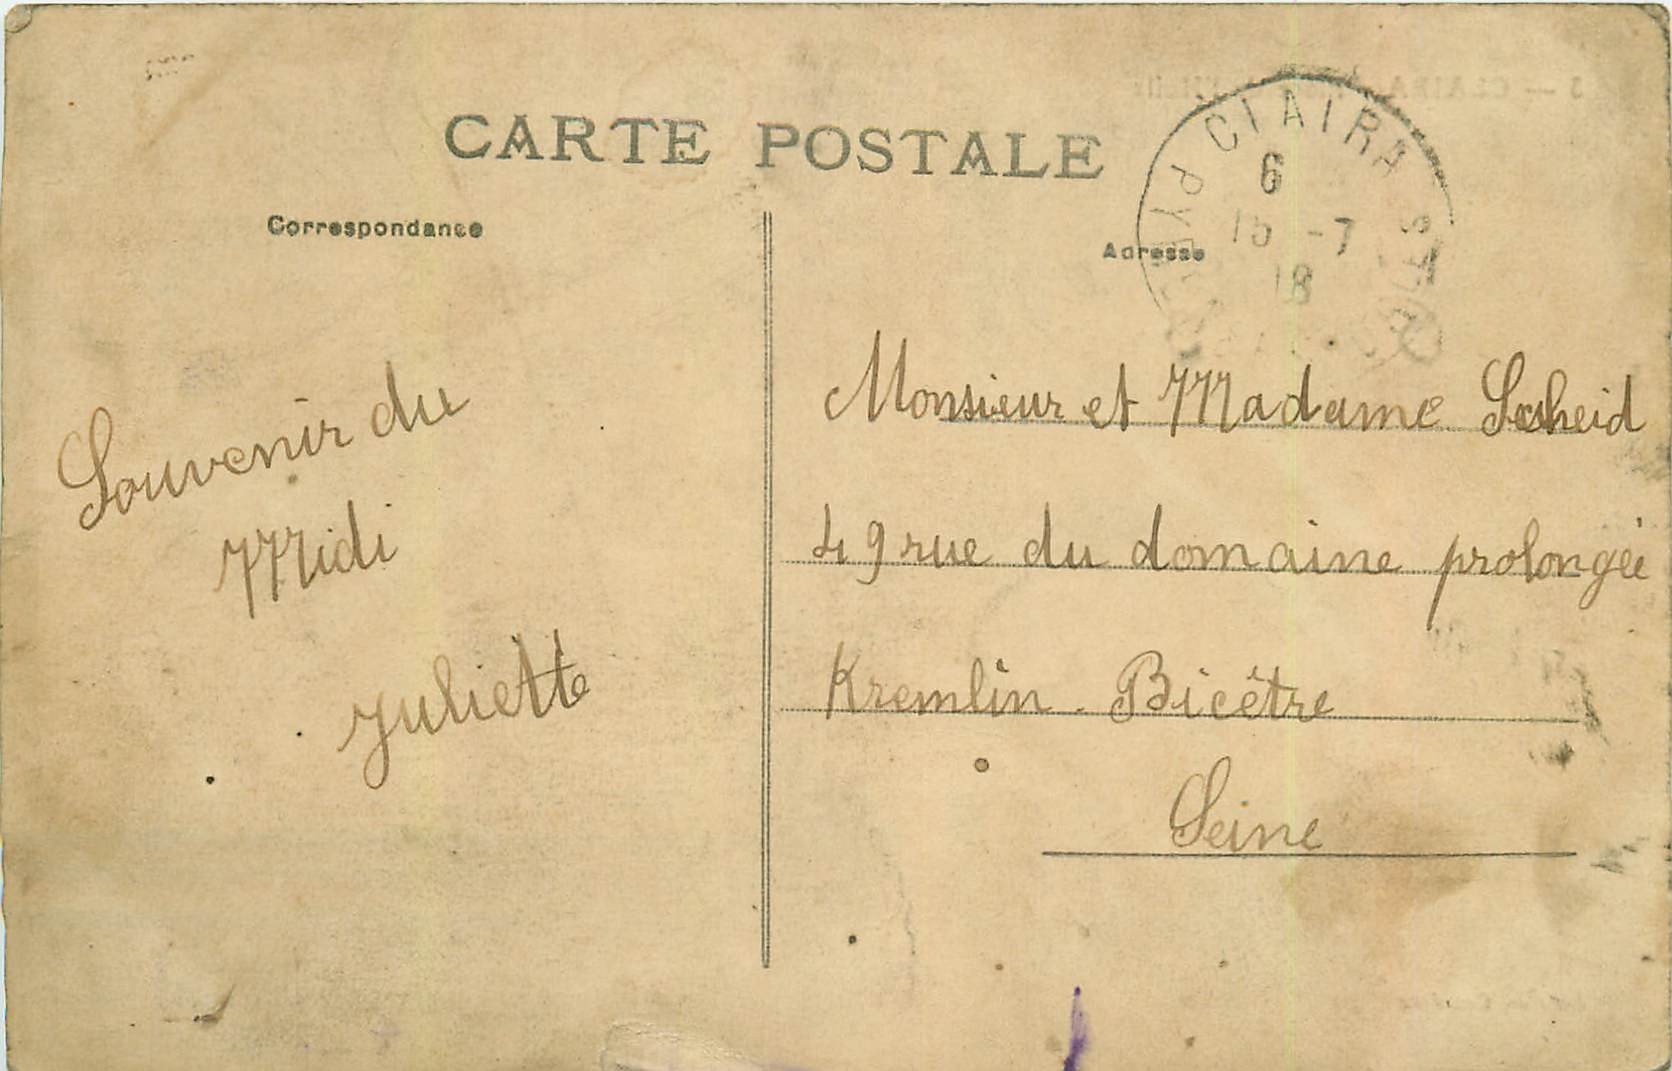 CARTE POSTALE
Correspondance
Adresse
CLAIRA
6
15 -7
18
PYR
Souvenir du
Midi
Juliette
Monsieur et Madame
49 rue du domaine prolongée
Kremlin-Bicêtre
Seine